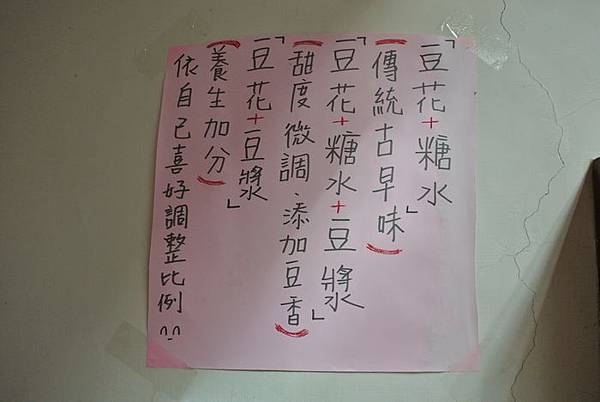 「豆花+糖水」
(傳統古早味)
「豆花+糖水+豆漿」
(甜度微調、添加豆香)
「豆花+豆漿」
(養生加分)
依自己喜好調整比例^_^